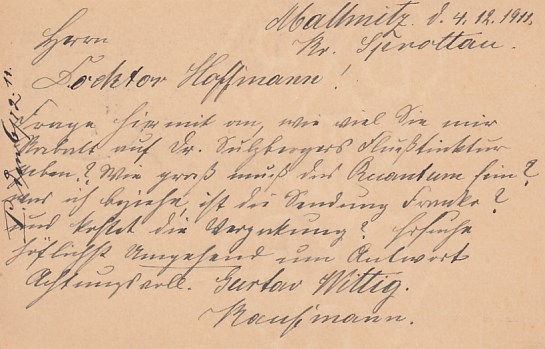 Mallmitz d. 4.12.1911.
Kr. Sprottau.
Herrn
Docktor Hoffmann!
Frage hiermit an, wie viel Sie mir
Rabatt auf Dr. Sulzbergers Flußtinktur
geben? Wie groß muß das Quantum sein?
was ich beziehe, ist die Sendung Franko?
und kostet die Verpakung? Ersuche
höflichst Umgehend um Antwort
Achtungsvoll. Gustav Wittig.
Kaufmann.